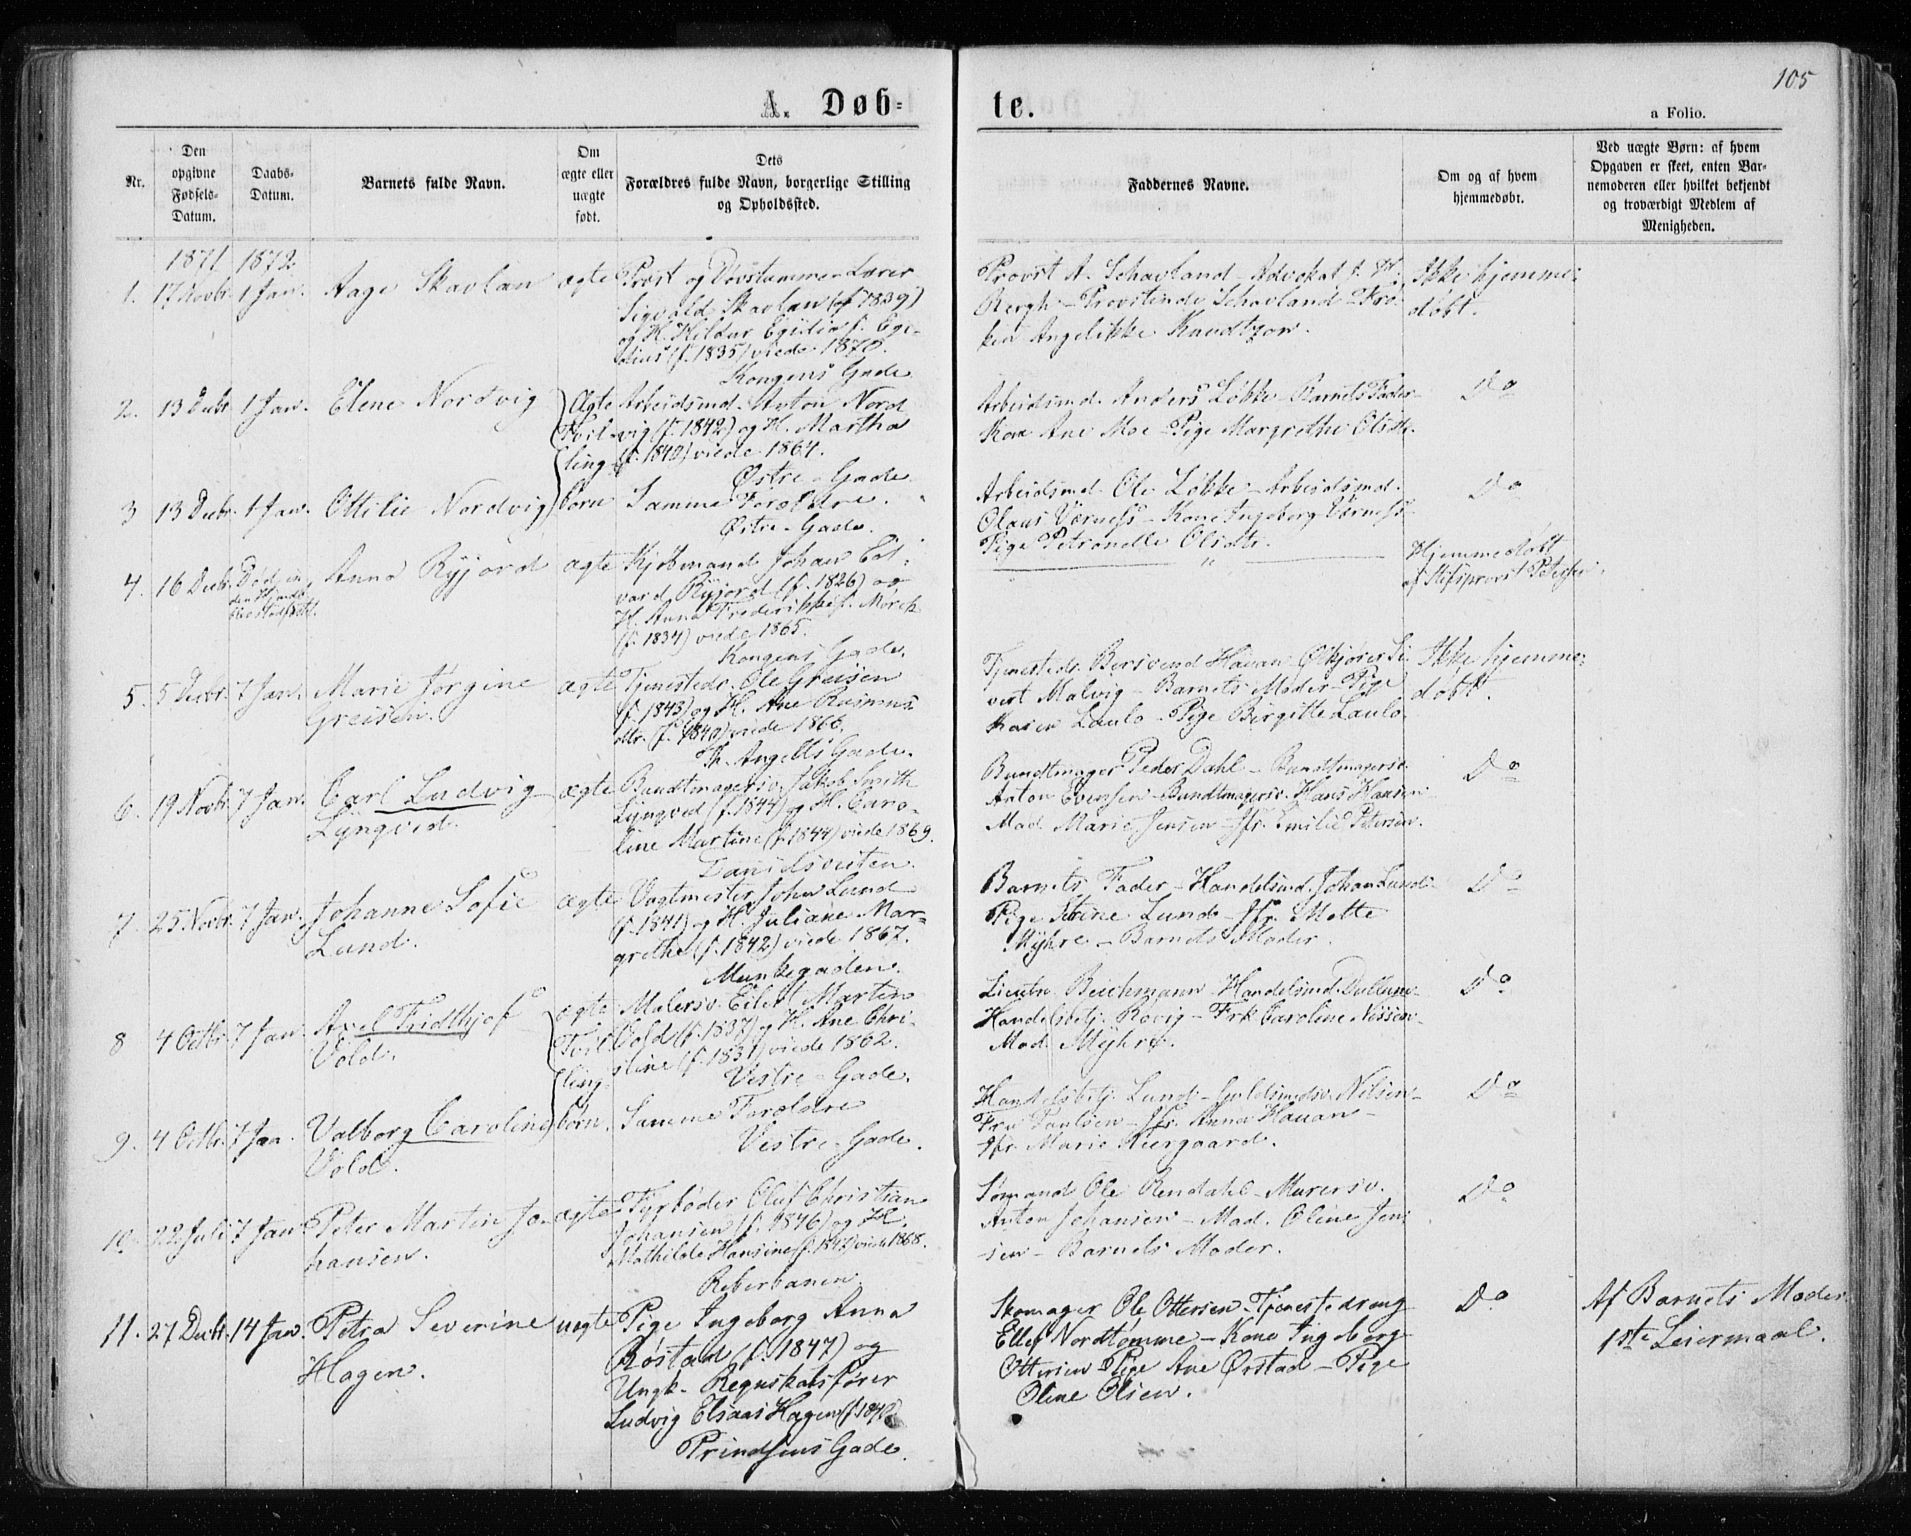 105
A. Døb-
te.
a Folio.
Nr.
Den
opgivne
Fødsels-
Datum.
Daabs-
Datum.
Barnets fulde Navn.
Om
ægte eller
uægte
født.
Dets
Forældres fulde Navn, borgerlige Stilling
og Opholdssted.
Faddernes Navne.
Om og af hvem
hjemmedøbt.
Ved uægte Børn: af hvem
Opgaven er skeet, enten Bar-
nemoderen eller hvilket bekjendt
og troværdigt Medlem af
Menigheden.
1871 1872
1. 17 Novbr. 1 Jan. Aage Skavlan ægte Præst og Døvstumme Lærer
Sigvald Skavlan (f. 1839)
og H. Hildur Egidia f. Ege-
dius (f. 1835) viede 1870.
Kongens Gade
Provst A. Schavland - Advokat
Bergh - Provstinde Schavland - Frø-
ken Angelikke Knudtzon.
Ikke hjemme-
døbt.
2. 13 Decbr. 1 Jan. Elene Nordvig Ægte Tvil- ling- Arbeidsmd. Anton Nord
vig (f. 1842) og H. Martha
(f. 1842) viede 1864.
Østre-Gade
Arbeidsmd. Anders Løkke - Barnets Fader -
Kone Ane Moe - Pige Margrethe Olsdt.
Do
3 13 Decbr. 1 Jan. Ottilie Nordvig børn Samme Forældre.
Østre-Gade.
Arbeidsmd. Ole Løkke - Arbeidsmd.
Olaus Værness - Kone Ingeborg Værness
Pige Petronelle Olsdtr.
Do
4. 16 Decbr. Død Anna Ryjord ægte Kjøbmand Johan Ed-
vard Ryjord (f. 1826) og
H. Anna Frederikke f. Mørch
(f. 1834) viede 1865.
Kongens Gade.
"
Hjemmedøbt
af Stiftsprovst Petersen.
5. 5 Decbr. 7 Jan. Marie Jørgine
Greisen. ægte Tjenestedr. Ole Greisen
(f. 1843) og H. Ane Rasmus
dtr. (f. 1840) viede 1866.
Th. Angells Gade.
Tjenestedr. Bersvend Hauan - Ølkjører Si-
vert Malvig - Barnets Moder - Pige
Karen Laulo - Pige Birgitte Laulo.
Ikke hjemme-
døbt.
6. 19 Novbr. 7 Jan. Carl Ludvig
Lyngved. ægte Bundtmagersv. Jakob Smith
Lyngved (f. 1844) og H. Caro-
line Martine (f. 1844) viede 1869.
Danielsveiten.
Bundtmager Peder Dahl - Bundtmagersv.
Anton Evensen - Bundtmagersv. Hans Hansen
Mad. Marie Jensen - Jfr. Emilie Petersen.
Do
7. 25 Novbr. 7 Jan. Johanne Sofie
Lund. ægte Vagtmester John Lund
(f. 1841) og H. Juliane Mar-
grethe (f. 1842) viede 1867.
Munkegaden.
Barnets Fader - Handelsmd. Johan Lund
Pige Stine Lund - Jfr. Mette
Myhre - Barnets Moder.
Do
8 4 Octbr. 7 Jan. Axel Fridthjof
Vold. ægte Tvil- ling- Malersv. Eilert Martin
Vold (f. 1837) og H. Ane Chri-
stine (f. 1831) viede 1862.
Vestre-Gade.
Lieutn. Reichmann - Handelsmd. Dullum -
Handelsbetj. Rovig - Frk. Caroline Nissen -
Mad. Myhre.
Do
9. 4 Octbr. 7 Jan. Valborg Caroline
Vold. børn. Samme Forældre
Vestre-Gade.
Handelsbetj. Lund - Guldsmedsv. Nilsen -
Fru Paulsen - Jfr. Anna Hauan -
Jfr. Marie Kiergaard.
Do
10. 22 Juli 7 Jan. Peter Martin Jo-
hansen. ægte Typbøder Oluf Christian
Johansen (f. 1846) og H.
Mathilde Hansine (f. 1843) viede 1868.
Reberbanen.
Sømand Ole Rendahl - Murersv.
Anton Johansen - Mad. Oline Jen-
sen - Barnets Moder.
Do
11. 27 Decbr. 14 Jan. Petra Severine
Hagen. uægte Pige Ingeborg Anna
Røstad (f. 1847) og
Ungk. Regnskabsfører
Ludvig Elsaas Hagen
Prindsens Gade.
Skomager Ole Ottersen - Tjenestedreng
Ellef Nordtømme - Kone Ingeborg
Ottersen Pige Ane Ørstad - Pige
Oline Olsen.
Do
Af Barnets Moder
1ste Leiermaal.